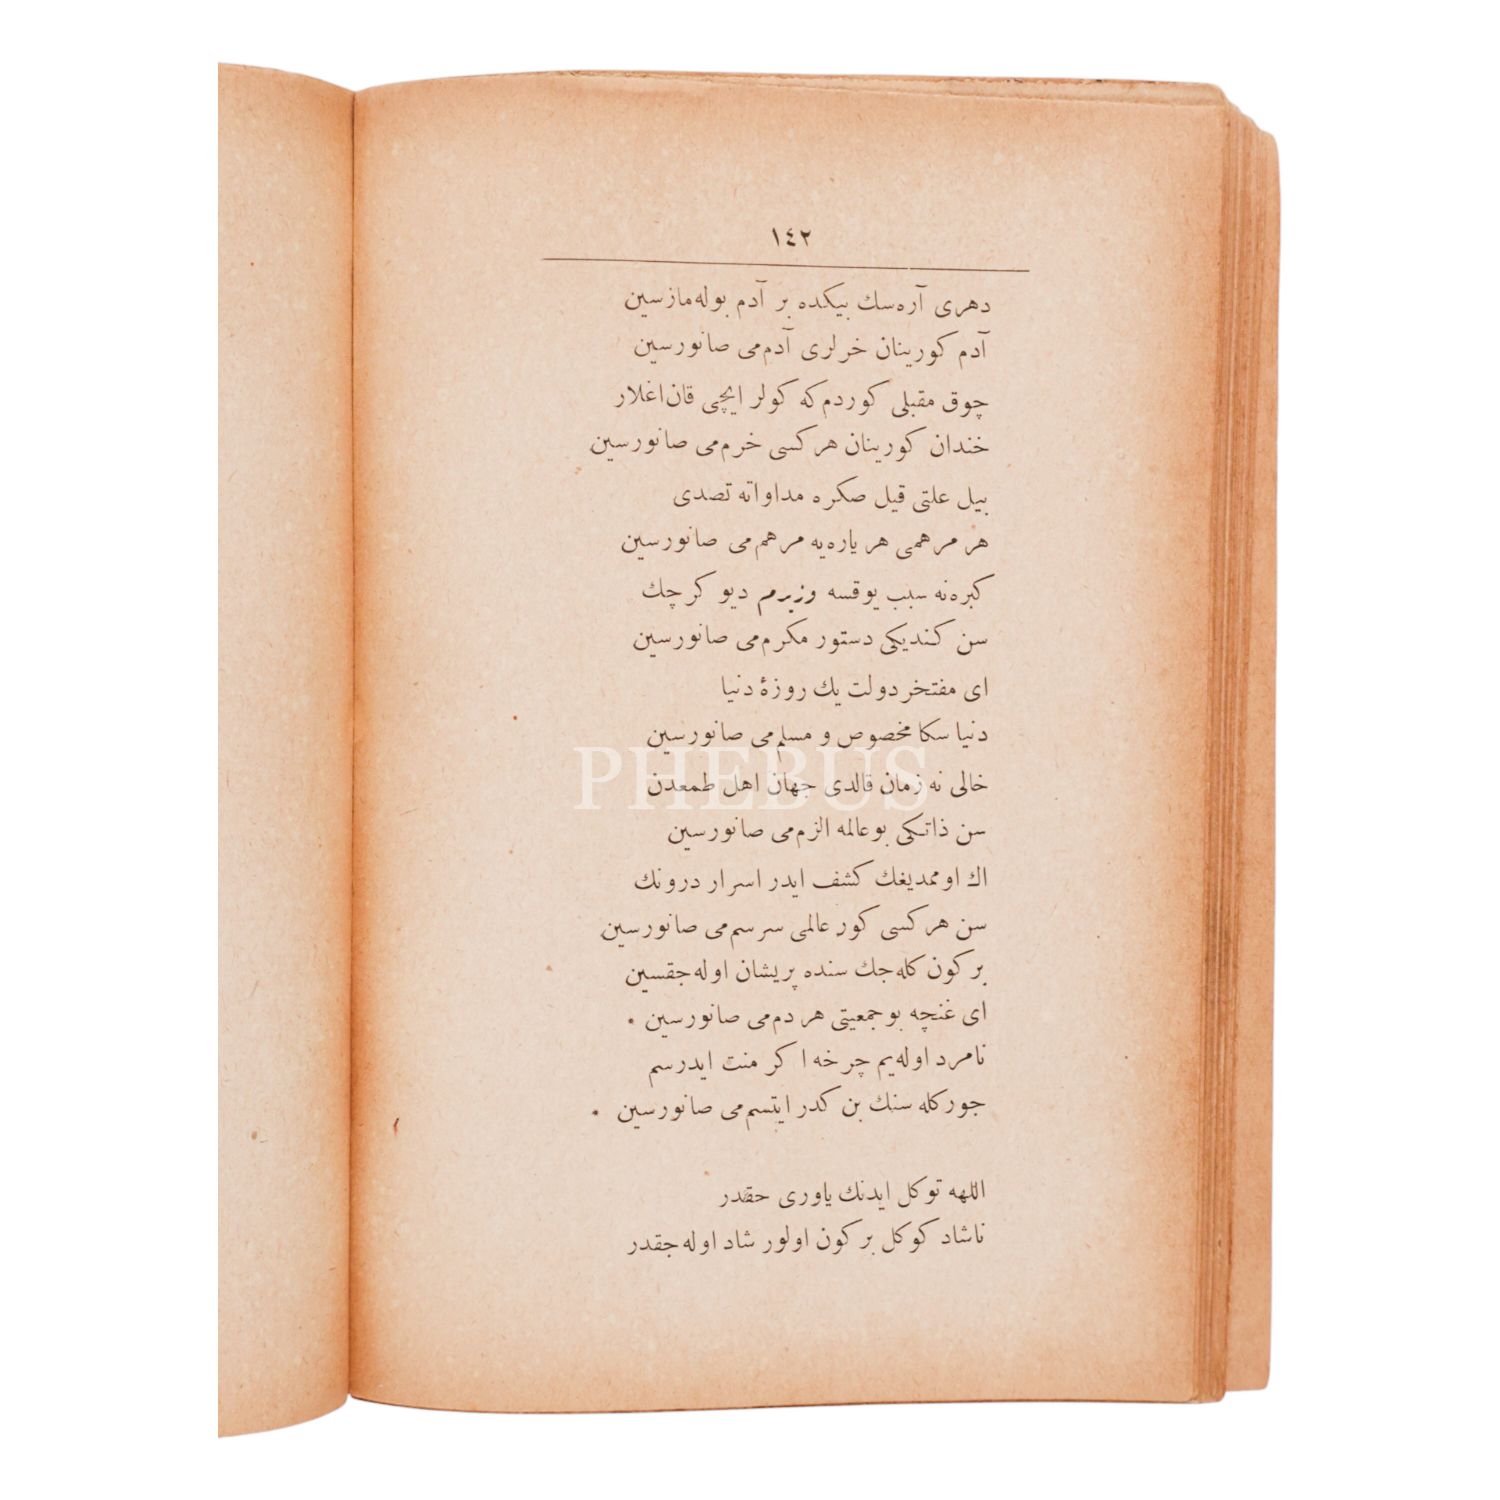 ١٤٢
دهرى آره‌سك بيكده بر آدم بوله‌مازسين
آدم كورينان خرلرى آدم‌مى صانورسين
چوق مقبلى كوردم‌كه كولر ايچى قان‌اغلار
خندان كورينان هركسى خرم‌مى صانورسين
بيل علتى قيل صكره مداواته تصدى
هر مرهمى هر ياره‌يه مرهم‌مى صانورسين
كبره‌نه سبب يوقسه وزيرم ديو كرچك
سن كنديكى دستور مكرم‌مى صانورسين
اى مفتخر دولت يك روزۀ دنيا
دنيا سكا مخصوص و مسلم‌مى صانورسين
خالى نه زمان قالدى جهان اهل طمعدن
سن ذاتكى بوعالمه الزم‌مى صانورسين
اك اوممديغك كشف ايدر اسرار درونك
سن هركسى كور عالمى سرسم‌مى صانورسين
بركون كله‌جك سنده پريشان اوله‌جقسين
اى غنچه بوجمعيتى هر دم‌مى صانورسين *
نامرد اوله‌يم چرخه اكر منت ايدرسم
جوركله سنك بن كدر ايتسم‌مى صانورسين *
اللهه توكل ايدنك ياورى حقدر
ناشاد كوكل بركون اولور شاد اوله‌جقدر
PHEBUS